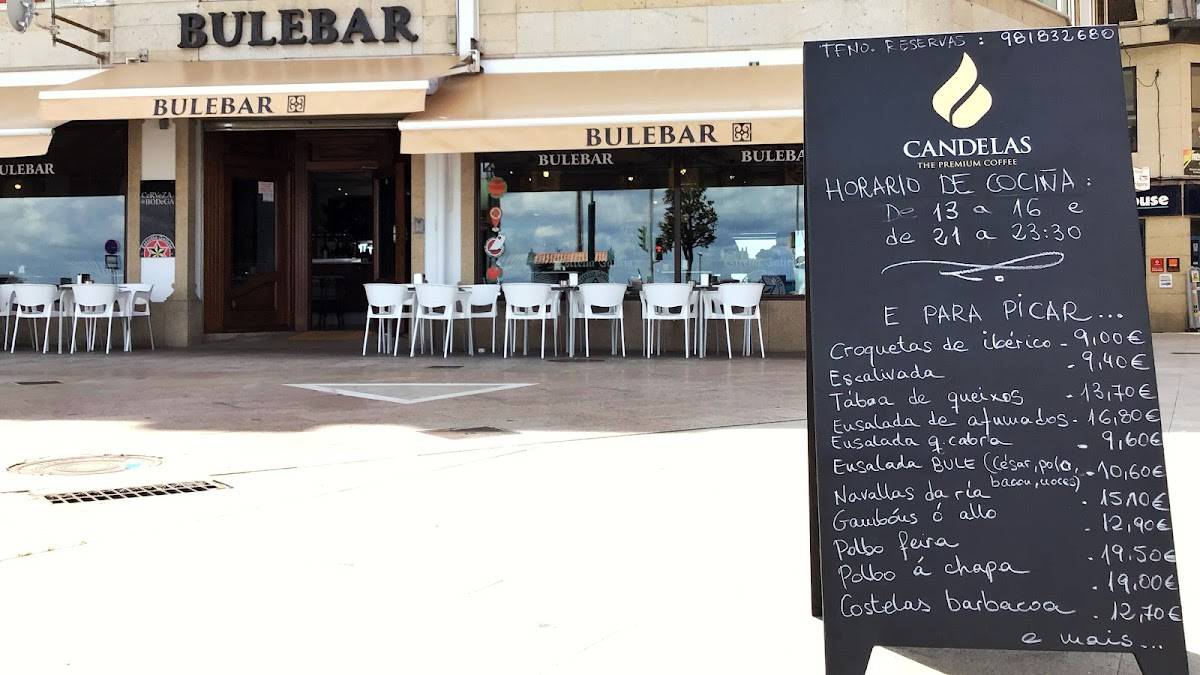 BULEBAR
BULEBAR
BULEBAR
BULEBAR
BULEBAR
BULEBA
CERVEZA
DE BODEGA
ouse
TFNO. RESERVAS : 981832680
CANDELAS
THE PREMIUM COFFEE
HORARIO DE COCIÑA :
De 13 a 16 e
de 21 a 23:30
E PARA PICAR...
Croquetas de ibérico - 9,00€
Escalivada - 9,40€
Táboa de queixos - 13,70€
Ensalada de afumados - 16,80€
Ensalada q. cabra - 9,60€
Ensalada BULE (César, polo, - 10,60€
bacon, noces)
Navallas da ría - 15,10€
Gambóns ó allo - 12,90€
Polbo feira - 19,50€
Polbo á chapa - 19,00€
Costelas barbacoa - 12,70€
e mais...